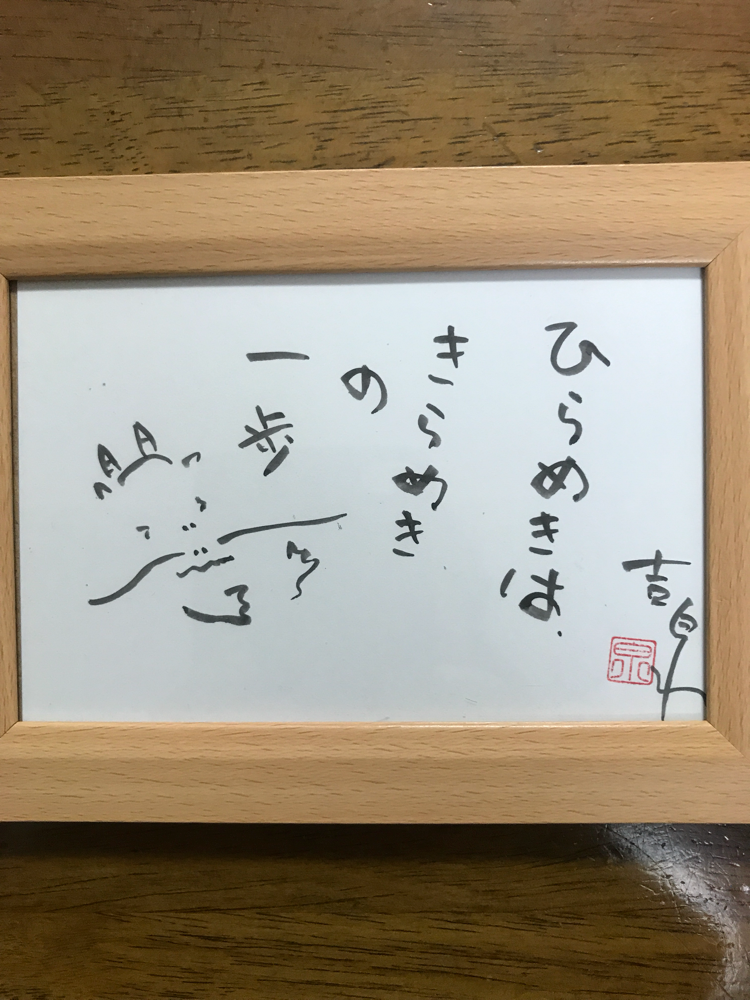 ひらめきは、
きらめき
の
一歩
吉泉
泉